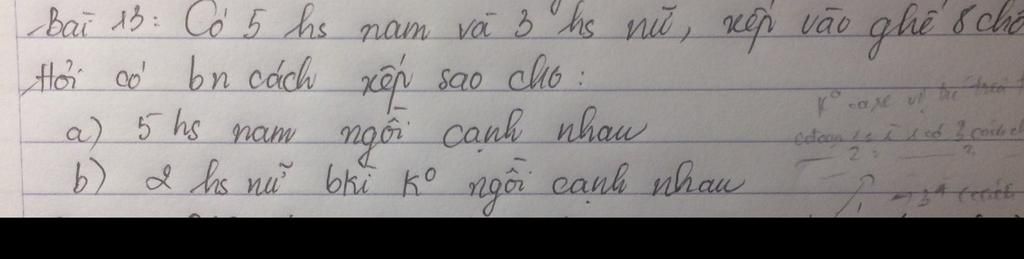 Bài 13: Có 5 hs nam và 3 hs nữ, xếp vào ghế 8 chỗ
Hỏi có bn cách xếp sao cho:
a) 5 hs nam ngồi cạnh nhau
b) 2 hs nữ bkì k° ngồi cạnh nhau